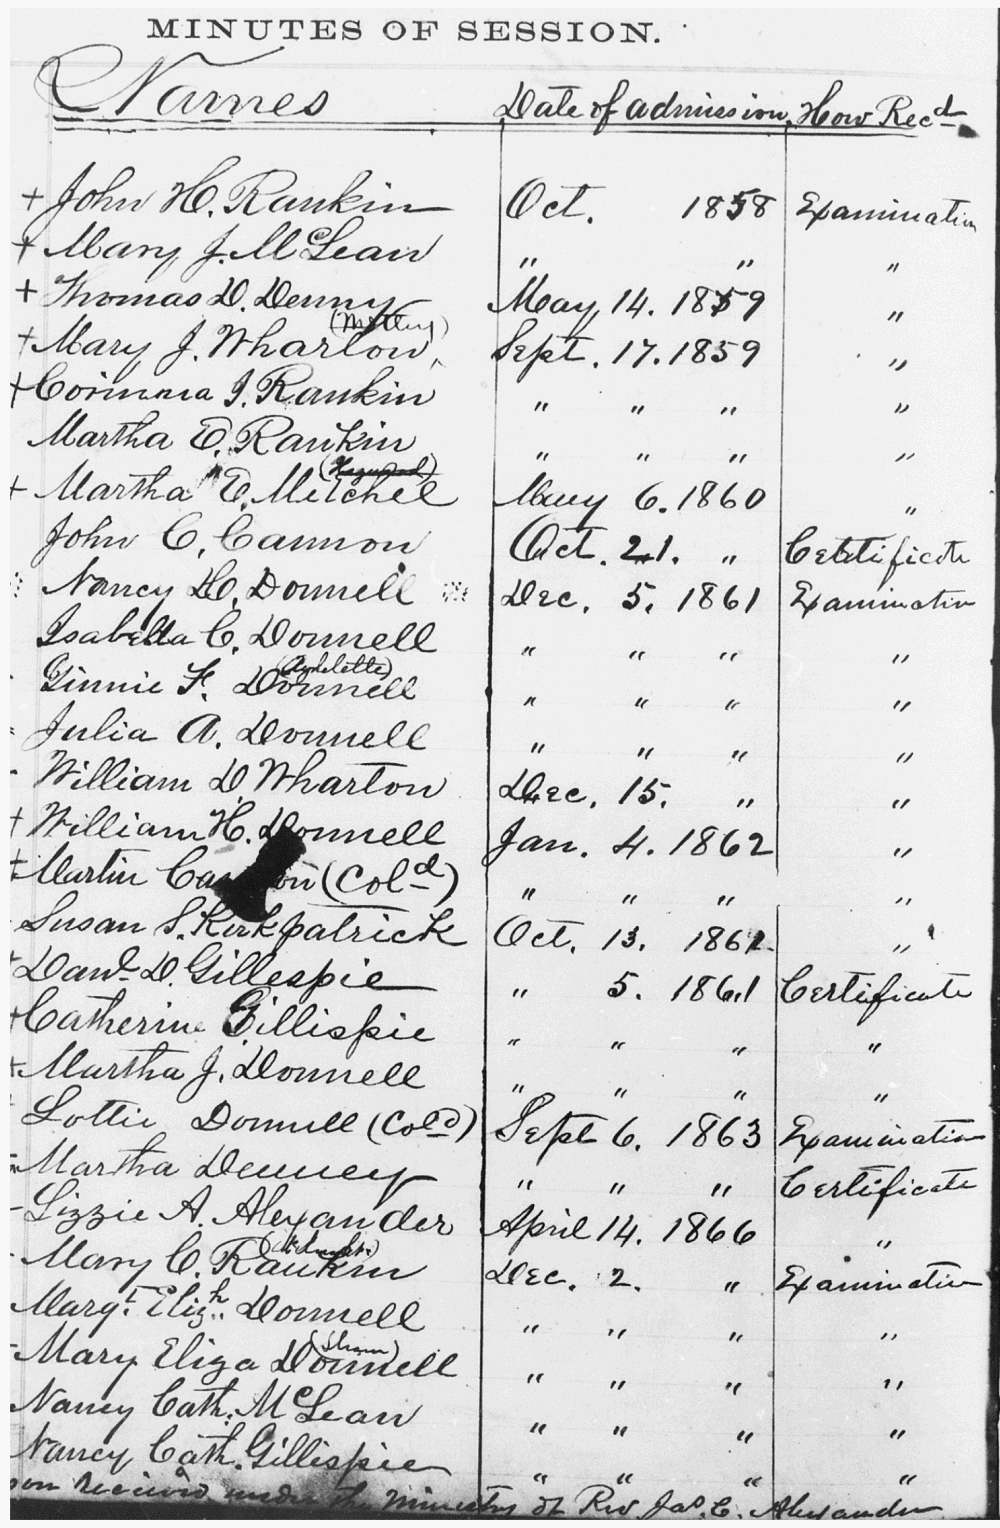 MINUTES OF SESSION.
Names Date of admission. How Recd
+ John H. Rankin Oct. 1858 Examination
+ Mary J. McLean " " "
+ Thomas D. Denny May 14. 1859 "
+ Mary J. Wharton Sept. 17. 1859 "
+ Corinna I. Rankin " " " "
Martha E. Rankin " " " "
+ Martha E. Mitchel May 6. 1860 "
John C. Cannon Oct. 21. " Certificate
Nancy H. Donnell Dec. 5. 1861 Examination
Isabella C. Donnell " " " "
(Ardelette)
Ginnie F. Donnell " " " "
Julia A. Donnell " " " "
William D Wharton Dec. 15. " "
+ William H. Donnell Jan. 4. 1862 "
+ Martin (Cold) " " " "
Susan S. Kirkpatrick Oct. 13. 1862 "
+ Danl D. Gillespie " 5. 1861 Certificate
+ Catherine Gillispie " " " "
+ Martha J. Donnell " " " "
Lottie Donnell (Cold) Sept 6. 1863 Examination
Martha Denney " " " Certificate
Lizzie A. Alexander April 14. 1866 "
Mary C. Rankin Dec. 2. " Examination
Margt. Elizh. Donnell " " " "
(Sharp)
Mary Eliza Donnell " " " "
Nancy Cath. McLean " " " "
Nancy Cath. Gillispie " " " "
received under the ministry of Rev Jas. C. Alexander